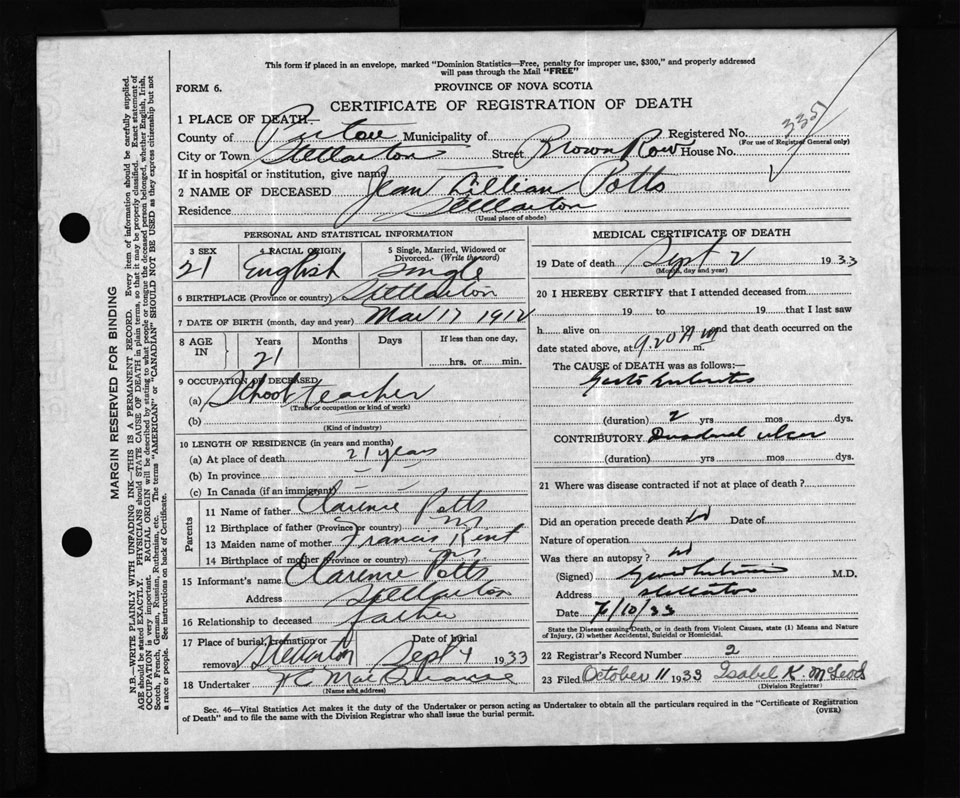 This form if placed in an envelope, marked "Dominion Statistics—Free, penalty for improper use, $300," and properly addressed
will pass through the Mail "FREE"
FORM 6.
PROVINCE OF NOVA SCOTIA
CERTIFICATE OF REGISTRATION OF DEATH
1 PLACE OF DEATH—
County of Pictou Municipality of Registered No. 335
(For use of Registrar General only)
City or Town Stellarton Street Brown Row House No.
If in hospital or institution, give name
2 NAME OF DECEASED Jean Lillian Potts
Residence Stellarton
(Usual place of abode)
PERSONAL AND STATISTICAL INFORMATION
3 SEX 4 RACIAL ORIGIN 5 Single, Married, Widowed or Divorced. (Write the word)
21 English Single
6 BIRTHPLACE (Province or country) Stellarton
7 DATE OF BIRTH (month, day and year) Mar 17 1912
8 AGE IN Years Months Days If less than one day,
21 hrs. or min.
9 OCCUPATION OF DECEASED
(a) School teacher
(Trade or occupation or kind of work)
(b)
(Kind of industry)
10 LENGTH OF RESIDENCE (in years and months)
(a) At place of death 21 years
(b) In province
(c) In Canada (if an immigrant)
Parents
11 Name of father Clarence Potts
12 Birthplace of father (Province or country)
13 Maiden name of mother Francis Kent
14 Birthplace of mother (Province or country)
15 Informant's name Clarence Potts
Address Stellarton
16 Relationship to deceased father
17 Place of burial, cremation or removal Stellarton Date of burial Sept 4 1933
18 Undertaker
(Name and address)
MEDICAL CERTIFICATE OF DEATH
19 Date of death Sept 2 1933
(Month, day and year)
20 I HEREBY CERTIFY that I attended deceased from
19 to 19 that I last saw
h alive on 19 and that death occurred on
date stated above, at 9.20 A m m.
The CAUSE OF DEATH was as follows:—
(duration) 2 yrs mos dys.
CONTRIBUTORY. Duodenal ulcer
(duration) yrs mos dys.
21 Where was disease contracted if not at place of death?
Did an operation precede death Date of
Nature of operation
Was there an autopsy?
(Signed) M.D.
Address Stellarton
Date 7/10/33
State the Disease causing Death, or in death from Violent Causes, state (1) Means and Nature
of Injury, (2) whether Accidental, Suicidal or Homicidal.
22 Registrar's Record Number 2
23 Filed October 11 1933 Isabel K. McLeod
(Division Registrar)
Sec. 46—Vital Statistics Act makes it the duty of the Undertaker or person acting as Undertaker to obtain all the particulars required in the "Certificate of Registration
of Death" and to file the same with the Division Registrar who shall issue the burial permit.
(OVER)
MARGIN RESERVED FOR BINDING
N.B.—WRITE PLAINLY WITH UNFADING INK—THIS IS A PERMANENT RECORD. Every item of information should be carefully supplied.
AGE should be stated EXACTLY. PHYSICIANS should STATE CAUSE OF DEATH in plain terms, so that it may be properly classified. Exact statement of
OCCUPATION is very important. RACIAL ORIGIN will be described by stating to what people or tongue the deceased person belonged, whether English, Irish,
Scotch, French, German, Russian, Ruthenian, etc. The terms "AMERICAN" or "CANADIAN" SHOULD NOT BE USED as they express citizenship but not
a race or people. See instructions on back of Certificate.